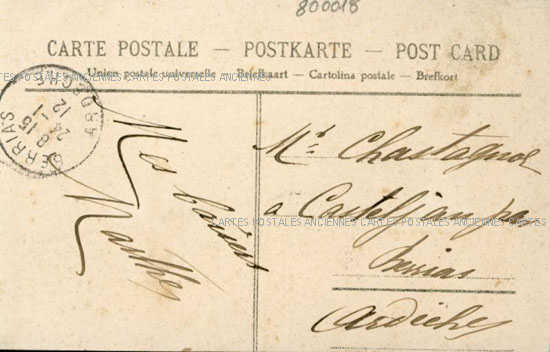 800018
CARTE POSTALE — POSTKARTE — POST CARD
Union postale universelle – Briefkaart – Cartolina postale – Brefkort
CARTES POSTALES ANCIENNES CARTES POSTALES ANCIENNES
BERRIAS
8 15
24 - 1
12
ARDECHE
Mes
Mr. Chastagnol
à
CARTES POSTALES ANCIENNES CARTES POSTALES ANCIENNES CARTES
berrias
Ardèche